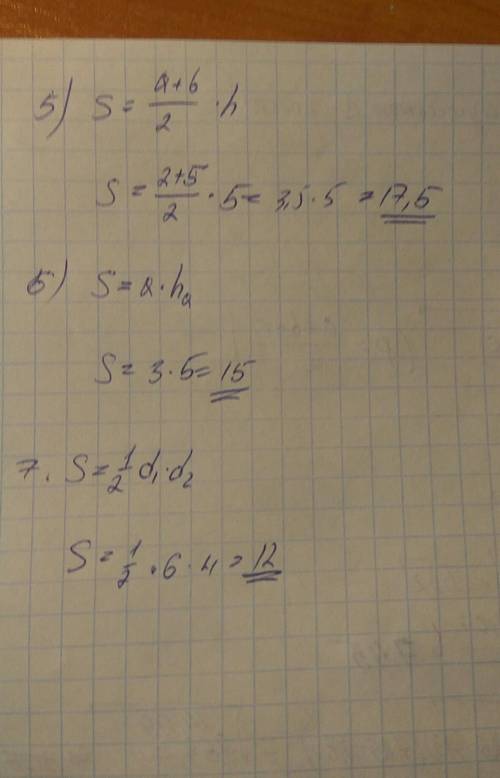 5) S = (a+b)/2 · h
S = (2+5)/2 · 5 = 3,5 · 5 = 17,5
6) S = a · hₐ
S = 3 · 5 = 15
7. S = 1/2 d₁ · d₂
S = 1/2 · 6 · 4 = 12